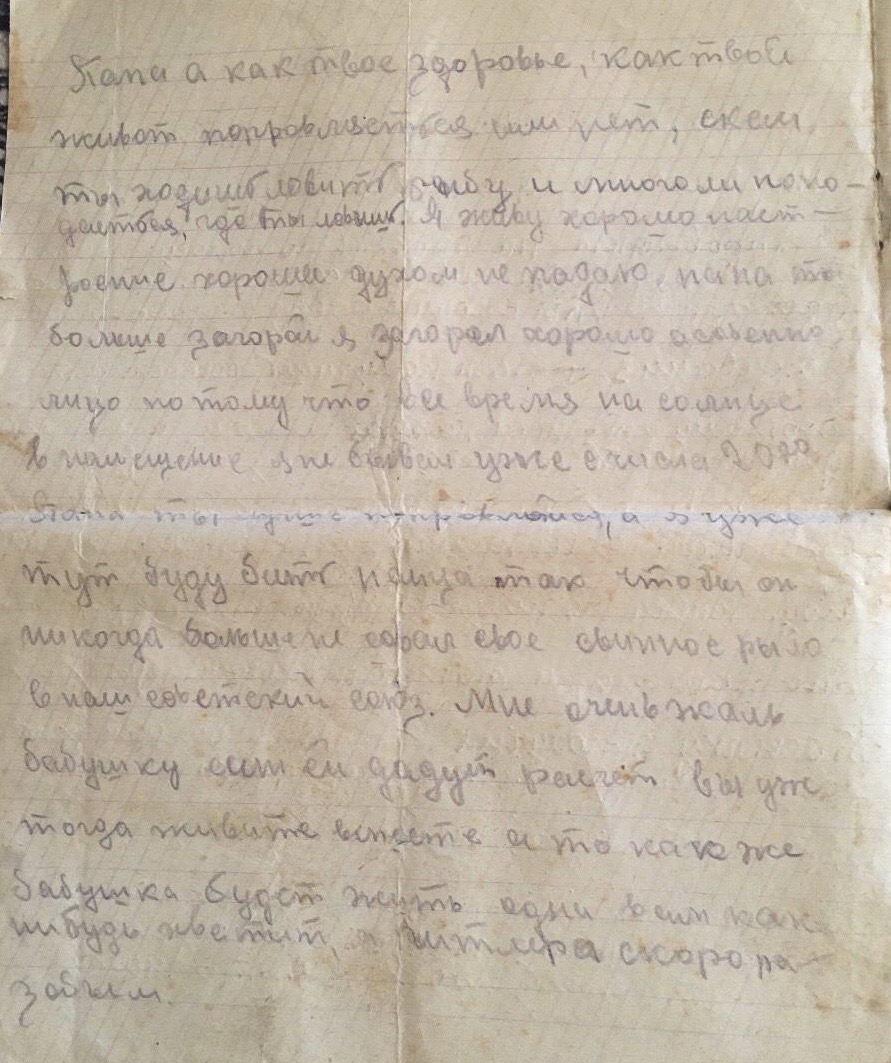 Папа а как твое здоровье, как твой
живот поправляеться или нет, скем
ты ходишь ловить рыбу и много ли попо-
даеться, где ты ловишь. Я живу хорошо наст-
роение хорошее духом не падаю, папа ты
больше загорай я загорел хорошо особенно
лицо потому что все время на солнце
в помещение я не бывал уже с числа 20го
Папа ты лучше поправляйся, а я уже
тут буду бить немца так чтобы он
никогда больше не совал свое свинное рыло
в наш советский союз. Мне очень жаль
бабушку если ей дадут расчет вы уж
тогда живите вместе а то как же
бабушка будет жить одна всем как
нибудь хватит, а Гитлера скоро ра-
зобьем.